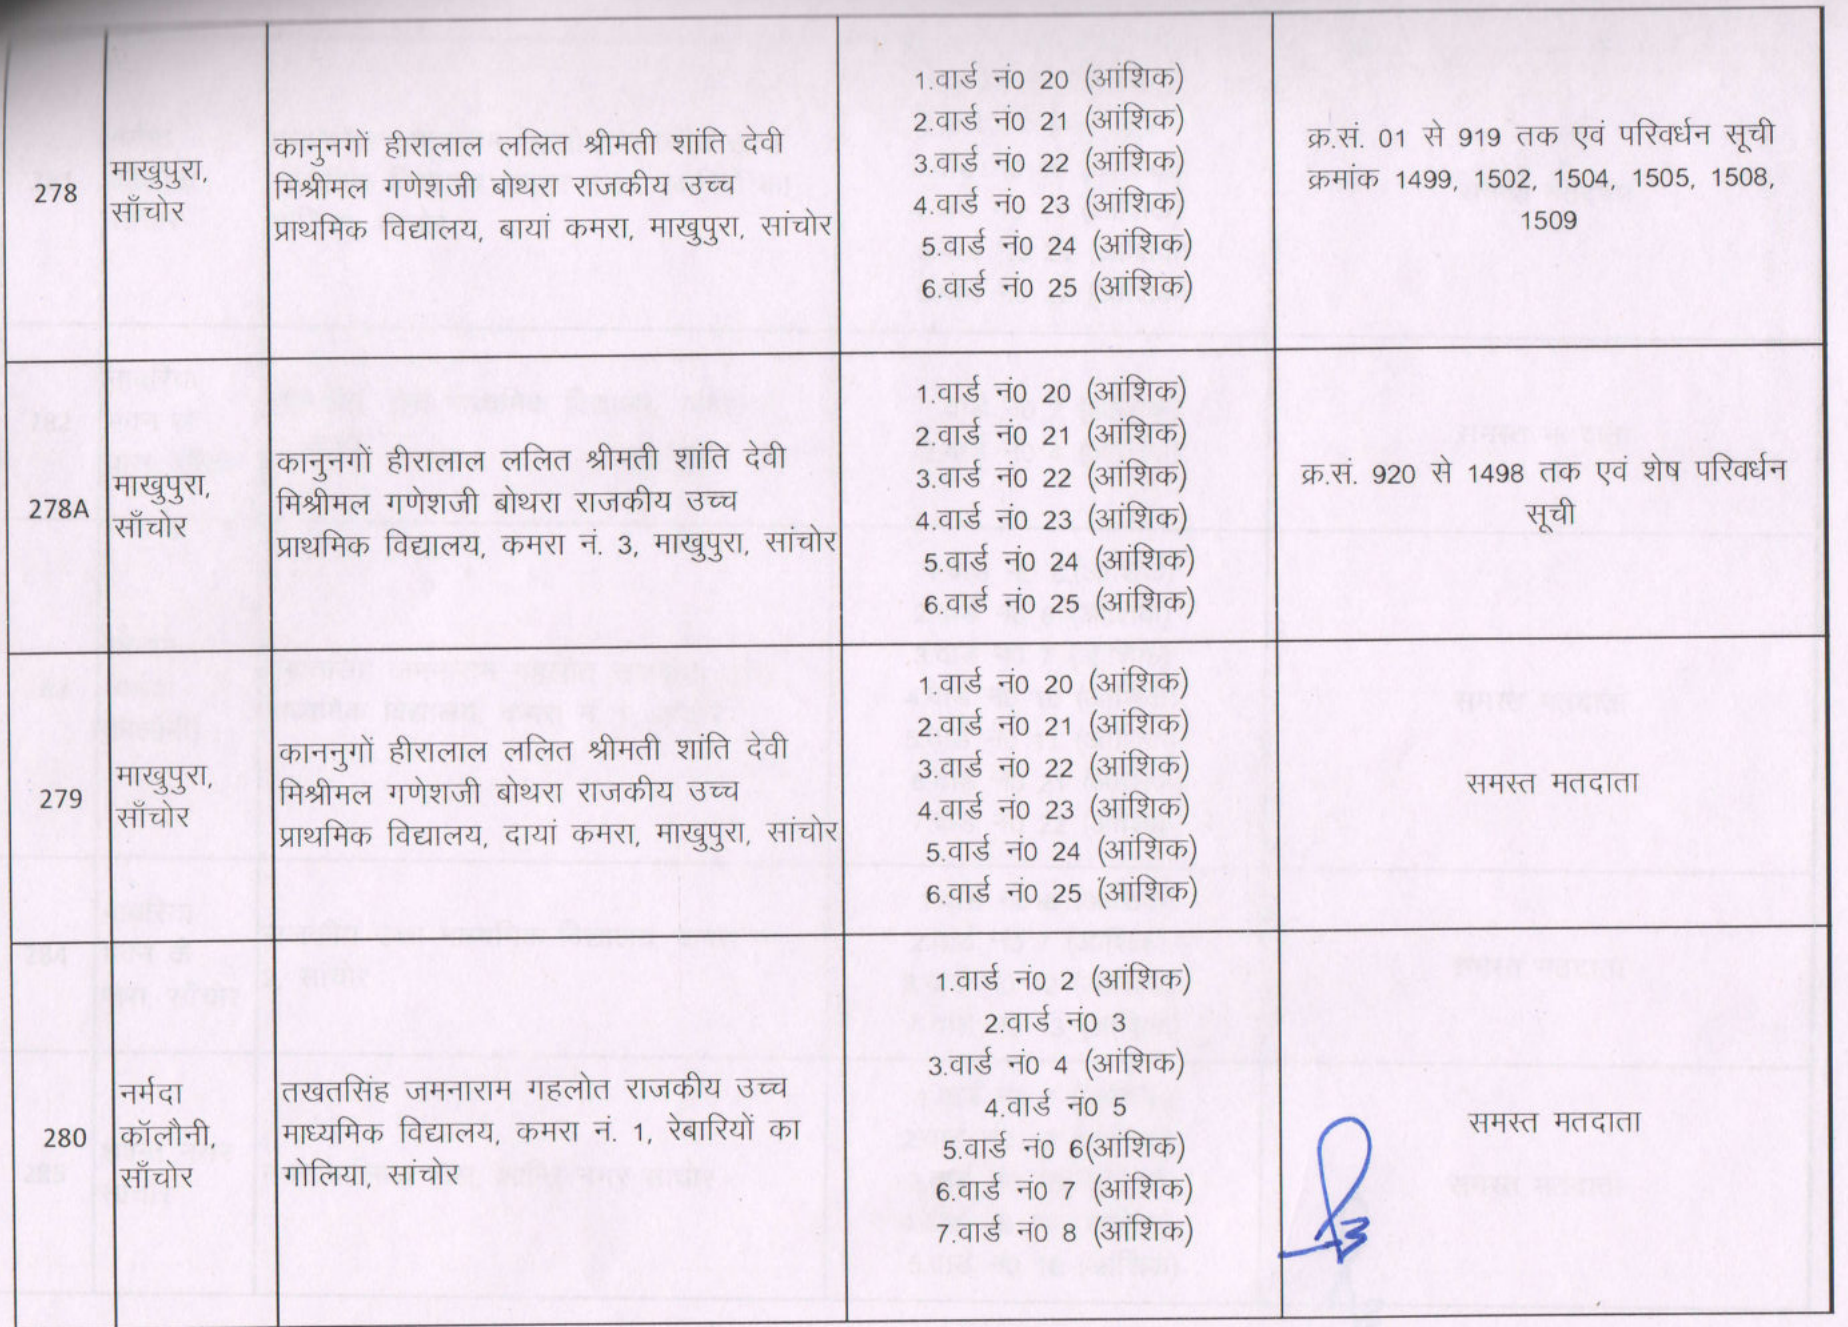 278
माखुपुरा,
साँचोर
कानुनगों हीरालाल ललित श्रीमती शांति देवी
मिश्रीमल गणेशजी बोथरा राजकीय उच्च
प्राथमिक विद्यालय, बायां कमरा, माखुपुरा, सांचोर
1.वार्ड नं0 20 (आंशिक)
2.वार्ड नं0 21 (आंशिक)
3.वार्ड नं0 22 (आंशिक)
4.वार्ड नं0 23 (आंशिक)
5.वार्ड नं0 24 (आंशिक)
6.वार्ड नं0 25 (आंशिक)
क्र.सं. 01 से 919 तक एवं परिवर्धन सूची
क्रमांक 1499, 1502, 1504, 1505, 1508,
1509
278A
माखुपुरा,
साँचोर
कानुनगों हीरालाल ललित श्रीमती शांति देवी
मिश्रीमल गणेशजी बोथरा राजकीय उच्च
प्राथमिक विद्यालय, कमरा नं. 3, माखुपुरा, सांचोर
1.वार्ड नं0 20 (आंशिक)
2.वार्ड नं0 21 (आंशिक)
3.वार्ड नं0 22 (आंशिक)
4.वार्ड नं0 23 (आंशिक)
5.वार्ड नं0 24 (आंशिक)
6.वार्ड नं0 25 (आंशिक)
क्र.सं. 920 से 1498 तक एवं शेष परिवर्धन
सूची
279
माखुपुरा,
साँचोर
काननुगों हीरालाल ललित श्रीमती शांति देवी
मिश्रीमल गणेशजी बोथरा राजकीय उच्च
प्राथमिक विद्यालय, दायां कमरा, माखुपुरा, सांचोर
1.वार्ड नं0 20 (आंशिक)
2.वार्ड नं0 21 (आंशिक)
3.वार्ड नं0 22 (आंशिक)
4.वार्ड नं0 23 (आंशिक)
5.वार्ड नं0 24 (आंशिक)
6.वार्ड नं0 25 (आंशिक)
समस्त मतदाता
280
नर्मदा
कॉलौनी,
साँचोर
तखतसिंह जमनाराम गहलोत राजकीय उच्च
माध्यमिक विद्यालय, कमरा नं. 1, रेबारियों का
गोलिया, सांचोर
1.वार्ड नं0 2 (आंशिक)
2.वार्ड नं0 3
3.वार्ड नं0 4 (आंशिक)
4.वार्ड नं0 5
5.वार्ड नं0 6(आंशिक)
6.वार्ड नं0 7 (आंशिक)
7.वार्ड नं0 8 (आंशिक)
समस्त मतदाता